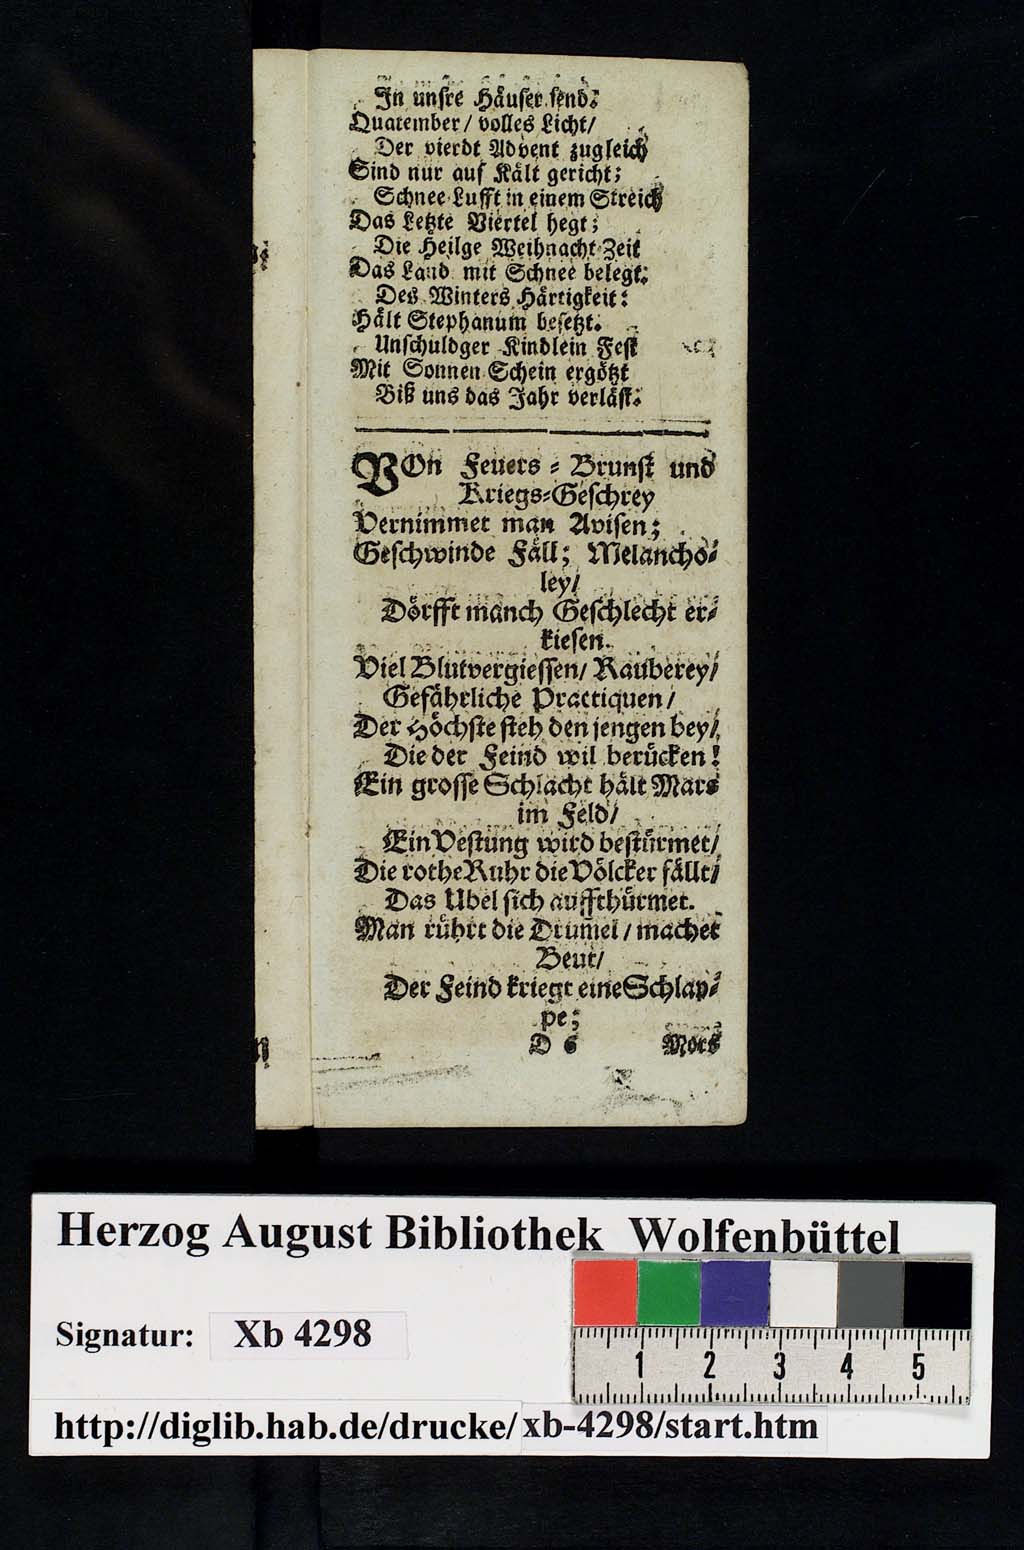 In unsre Häuser send.
Quatember/ volles Licht/
Der vierdt Advent zugleich
Sind nur auf Kält gericht;
Schnee Lufft in einem Streich
Das Letzte Viertel hegt;
Die Heilge Weihnacht-Zeit
Das Land mit Schnee belegt.
Des Winters Härtigkeit:
Hält Stephanum besetzt.
Unschuldger Kindlein Fest
Mit Sonnen Schein ergötzt
Biß uns das Jahr verläst.
VOn Feuers-Brunst und
Kriegs-Geschrey
Vernimmet man Avisen;
Geschwinde Fäll; Melancho-
ley/
Dörfft manch Geschlecht er-
kiesen.
Viel Blutvergiessen/ Rauberey/
Gefährliche Practiquen/
Der Höchste steh den jengen bey/
Die der Feind wil berücken!
Ein grosse Schlacht hält Mars
im Feld/
Ein Vestung wird bestürmet/
Die rothe Ruhr die Völcker fällt/
Das Ubel sich auffthürmet.
Man rührt die Drum̃el/ machet
Beut/
Der Feind kriegt eine Schlap-
pe;
D 6 Mors
Herzog August Bibliothek Wolfenbüttel
Signatur: Xb 4298
1 2 3 4 5
http://diglib.hab.de/drucke/xb-4298/start.htm